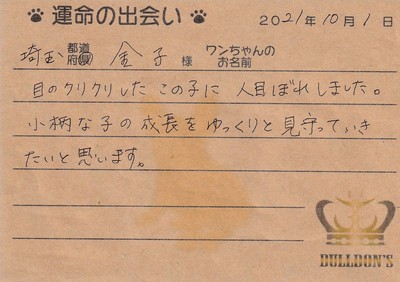 運命の出会い 2021年10月1日
埼玉 都道府県 金子様 ワンちゃんのお名前
目のクリクリした この子に 一目ぼれしました。
小柄な子の成長をゆっくりと見守っていき
たいと思います。
DULLDON'S